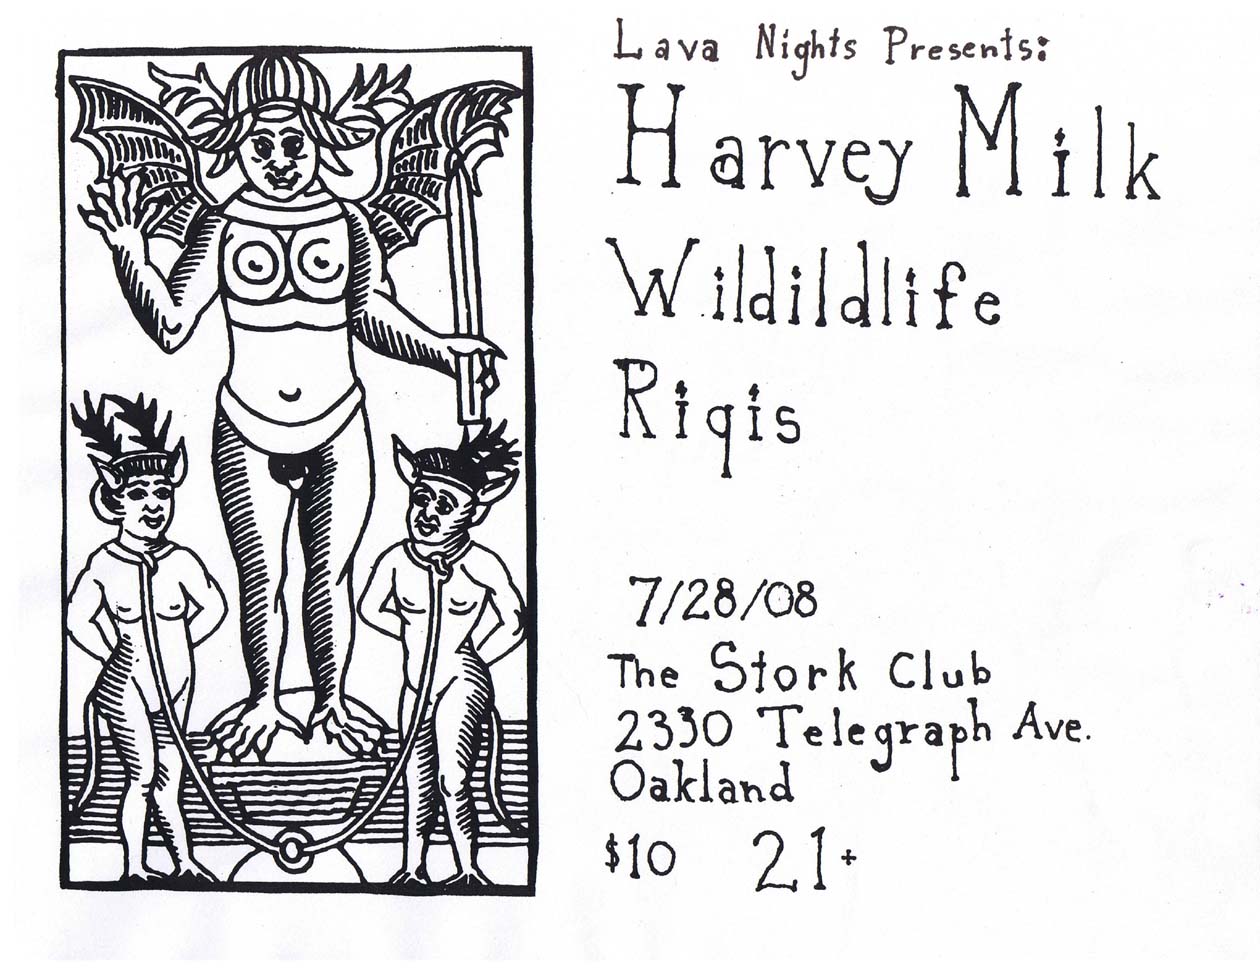 Lava Nights Presents:
Harvey Milk
Wildildlife
Riqis
7/28/08
The Stork Club
2330 Telegraph Ave.
Oakland
$10 21+